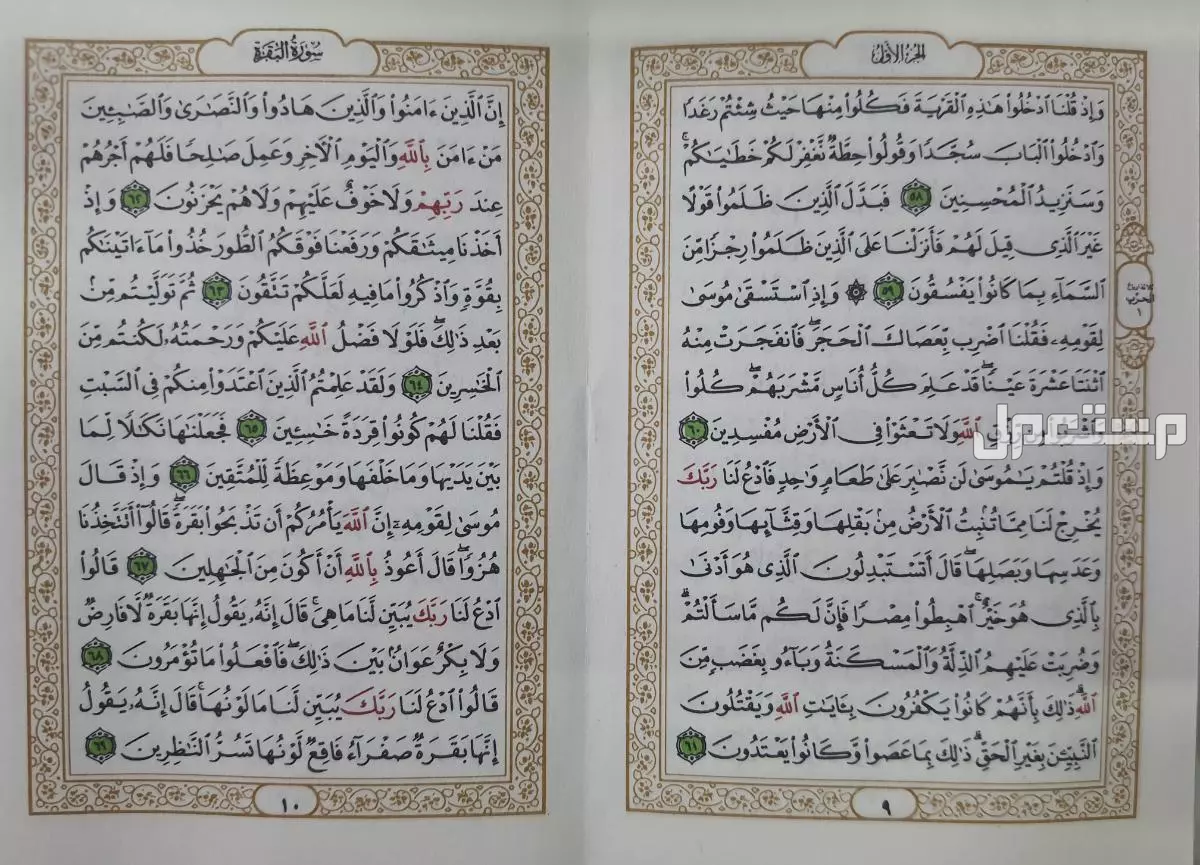 الجزء الأول
وَإِذْ قُلْنَا ٱدْخُلُوا۟ هَـٰذِهِ ٱلْقَرْيَةَ فَكُلُوا۟ مِنْهَا حَيْثُ شِئْتُمْ رَغَدًا
وَٱدْخُلُوا۟ ٱلْبَابَ سُجَّدًا وَقُولُوا۟ حِطَّةٌ نَّغْفِرْ لَكُمْ خَطَـٰيَـٰكُمْ ۚ
وَسَنَزِيدُ ٱلْمُحْسِنِينَ ٥٨ فَبَدَّلَ ٱلَّذِينَ ظَلَمُوا۟ قَوْلًا
غَيْرَ ٱلَّذِى قِيلَ لَهُمْ فَأَنزَلْنَا عَلَى ٱلَّذِينَ ظَلَمُوا۟ رِجْزًا مِّنَ
ٱلسَّمَآءِ بِمَا كَانُوا۟ يَفْسُقُونَ ٥٩ ۞ وَإِذِ ٱسْتَسْقَىٰ مُوسَىٰ
لِقَوْمِهِۦ فَقُلْنَا ٱضْرِب بِّعَصَاكَ ٱلْحَجَرَ ۖ فَٱنفَجَرَتْ مِنْهُ
ٱثْنَتَا عَشْرَةَ عَيْنًا ۖ قَدْ عَلِمَ كُلُّ أُنَاسٍ مَّشْرَبَهُمْ ۖ كُلُوا۟
ٱللَّهِ وَلَا تَعْثَوْا۟ فِى ٱلْأَرْضِ مُفْسِدِينَ ٦٠
وَإِذْ قُلْتُمْ يَـٰمُوسَىٰ لَن نَّصْبِرَ عَلَىٰ طَعَامٍ وَٰحِدٍ فَٱدْعُ لَنَا رَبَّكَ
يُخْرِجْ لَنَا مِمَّا تُنۢبِتُ ٱلْأَرْضُ مِنۢ بَقْلِهَا وَقِثَّآئِهَا وَفُومِهَا
وَعَدَسِهَا وَبَصَلِهَا ۖ قَالَ أَتَسْتَبْدِلُونَ ٱلَّذِى هُوَ أَدْنَىٰ
بِٱلَّذِى هُوَ خَيْرٌ ۚ ٱهْبِطُوا۟ مِصْرًا فَإِنَّ لَكُم مَّا سَأَلْتُمْ ۗ
وَضُرِبَتْ عَلَيْهِمُ ٱلذِّلَّةُ وَٱلْمَسْكَنَةُ وَبَآءُو بِغَضَبٍ مِّنَ
ٱللَّهِ ۗ ذَٰلِكَ بِأَنَّهُمْ كَانُوا۟ يَكْفُرُونَ بِـَٔايَـٰتِ ٱللَّهِ وَيَقْتُلُونَ
ٱلنَّبِيِّـۧنَ بِغَيْرِ ٱلْحَقِّ ۗ ذَٰلِكَ بِمَا عَصَوا۟ وَّكَانُوا۟ يَعْتَدُونَ ٦١
٩
الحزب
١
مستعمل
سورة البقرة
إِنَّ ٱلَّذِينَ ءَامَنُوا۟ وَٱلَّذِينَ هَادُوا۟ وَٱلنَّصَـٰرَىٰ وَٱلصَّـٰبِـِٔينَ
مَنْ ءَامَنَ بِٱللَّهِ وَٱلْيَوْمِ ٱلْـَٔاخِرِ وَعَمِلَ صَـٰلِحًا فَلَهُمْ أَجْرُهُمْ
عِندَ رَبِّهِمْ وَلَا خَوْفٌ عَلَيْهِمْ وَلَا هُمْ يَحْزَنُونَ ٦٢ وَإِذْ
أَخَذْنَا مِيثَـٰقَكُمْ وَرَفَعْنَا فَوْقَكُمُ ٱلطُّورَ خُذُوا۟ مَآ ءَاتَيْنَـٰكُم
بِقُوَّةٍ وَٱذْكُرُوا۟ مَا فِيهِ لَعَلَّكُمْ تَتَّقُونَ ٦٣ ثُمَّ تَوَلَّيْتُم مِّنۢ
بَعْدِ ذَٰلِكَ ۖ فَلَوْلَا فَضْلُ ٱللَّهِ عَلَيْكُمْ وَرَحْمَتُهُۥ لَكُنتُم مِّنَ
ٱلْخَـٰسِرِينَ ٦٤ وَلَقَدْ عَلِمْتُمُ ٱلَّذِينَ ٱعْتَدَوْا۟ مِنكُمْ فِى ٱلسَّبْتِ
فَقُلْنَا لَهُمْ كُونُوا۟ قِرَدَةً خَـٰسِـِٔينَ ٦٥ فَجَعَلْنَـٰهَا نَكَـٰلًا لِّمَا
بَيْنَ يَدَيْهَا وَمَا خَلْفَهَا وَمَوْعِظَةً لِّلْمُتَّقِينَ ٦٦ وَإِذْ قَالَ
مُوسَىٰ لِقَوْمِهِۦٓ إِنَّ ٱللَّهَ يَأْمُرُكُمْ أَن تَذْبَحُوا۟ بَقَرَةً ۖ قَالُوٓا۟ أَتَتَّخِذُنَا
هُزُوًا ۖ قَالَ أَعُوذُ بِٱللَّهِ أَنْ أَكُونَ مِنَ ٱلْجَـٰهِلِينَ ٦٧ قَالُوا۟
ٱدْعُ لَنَا رَبَّكَ يُبَيِّن لَّنَا مَا هِىَ ۚ قَالَ إِنَّهُۥ يَقُولُ إِنَّهَا بَقَرَةٌ لَّا فَارِضٌ
وَلَا بِكْرٌ عَوَانٌۢ بَيْنَ ذَٰلِكَ ۖ فَٱفْعَلُوا۟ مَا تُؤْمَرُونَ ٦٨
قَالُوا۟ ٱدْعُ لَنَا رَبَّكَ يُبَيِّن لَّنَا مَا لَوْنُهَا ۚ قَالَ إِنَّهُۥ يَقُولُ
إِنَّهَا بَقَرَةٌ صَفْرَآءُ فَاقِعٌ لَّوْنُهَا تَسُرُّ ٱلنَّـٰظِرِينَ ٦٩
١٠